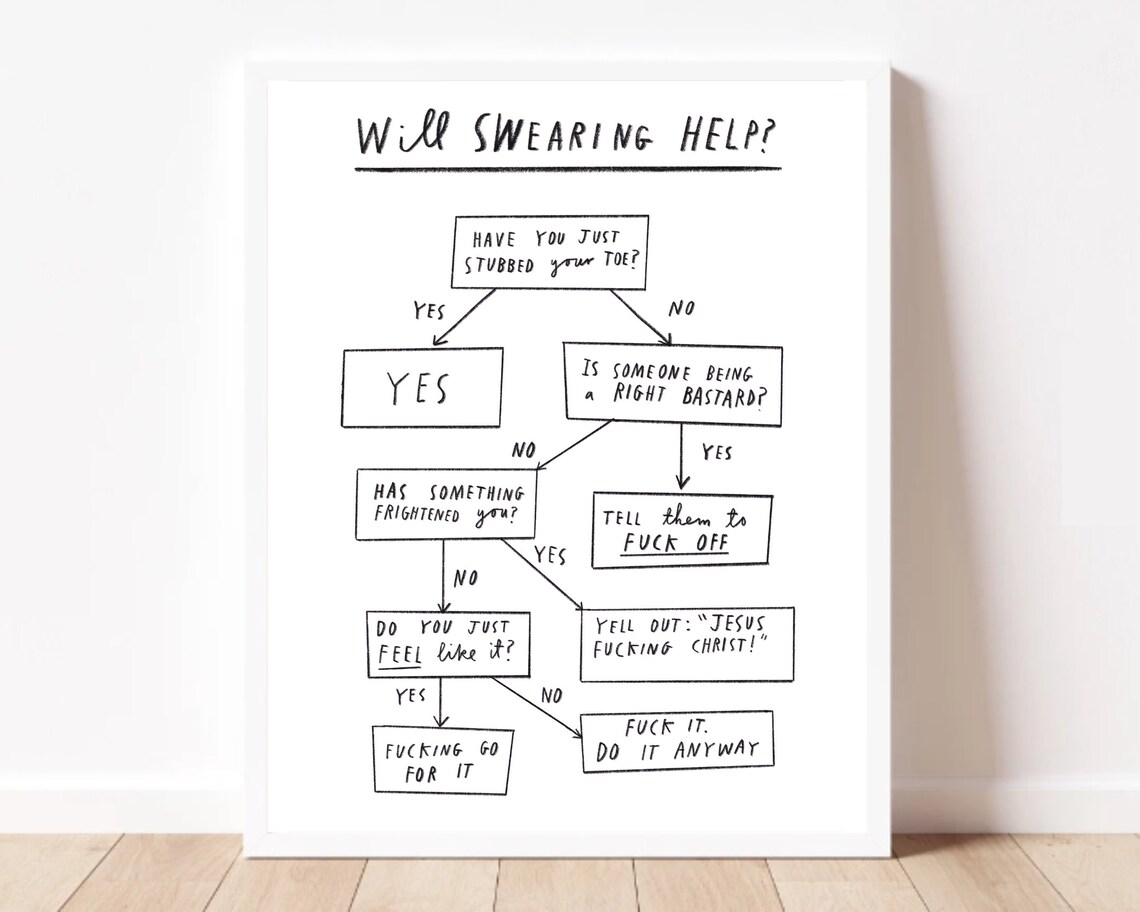 Will SWEARING HELP?
HAVE YOU JUST
STUBBED your TOE?
YES
NO
YES
IS SOMEONE BEING
a RIGHT BASTARD?
NO
YES
HAS SOMETHING
FRIGHTENED you?
TELL them to
FUCK OFF
NO
YES
DO YOU JUST
FEEL like it?
YELL OUT: "JESUS
FUCKING CHRIST!"
YES
NO
FUCKING GO
FOR IT
FUCK IT.
DO IT ANYWAY